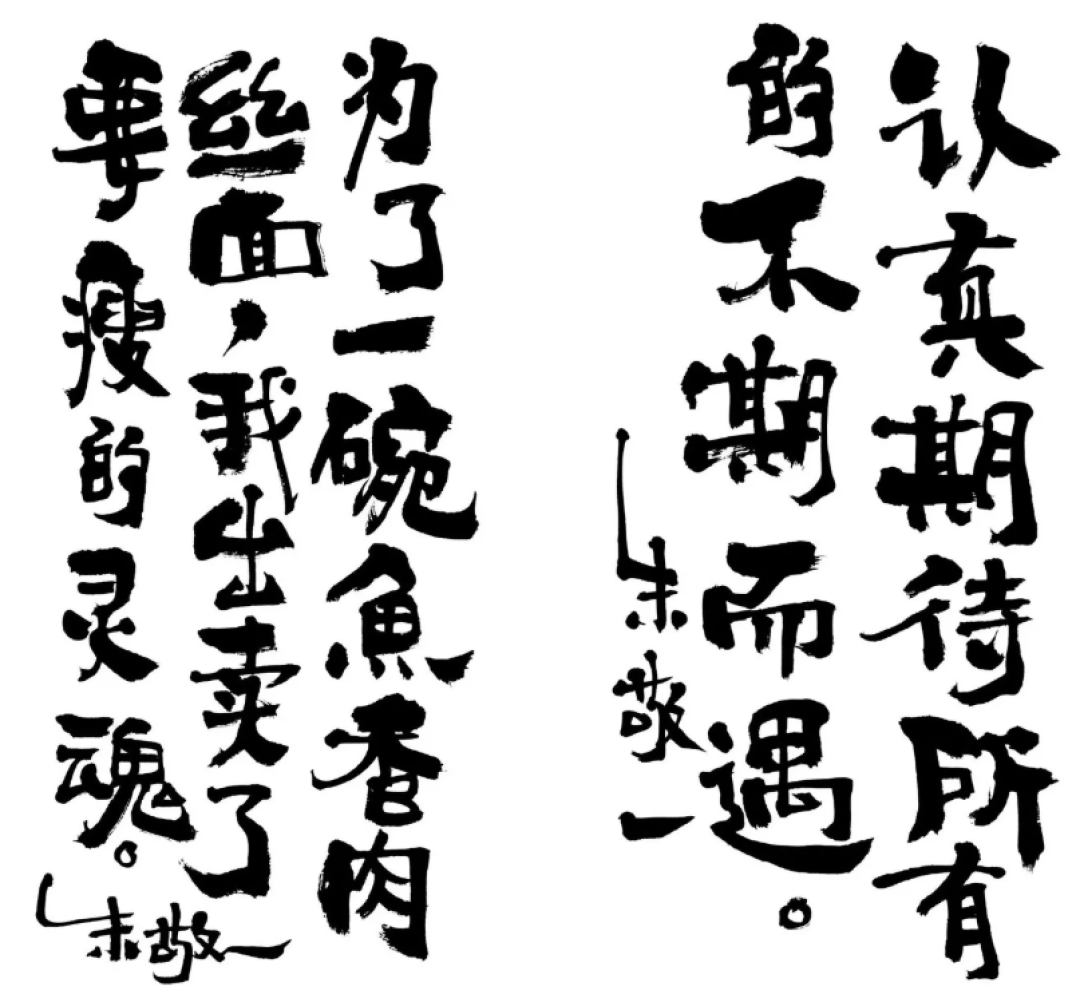 认真期待所有
的不期而遇。
朱敬一
为了一碗魚香肉
丝面，我出卖了
要瘦的灵魂。
朱敬一